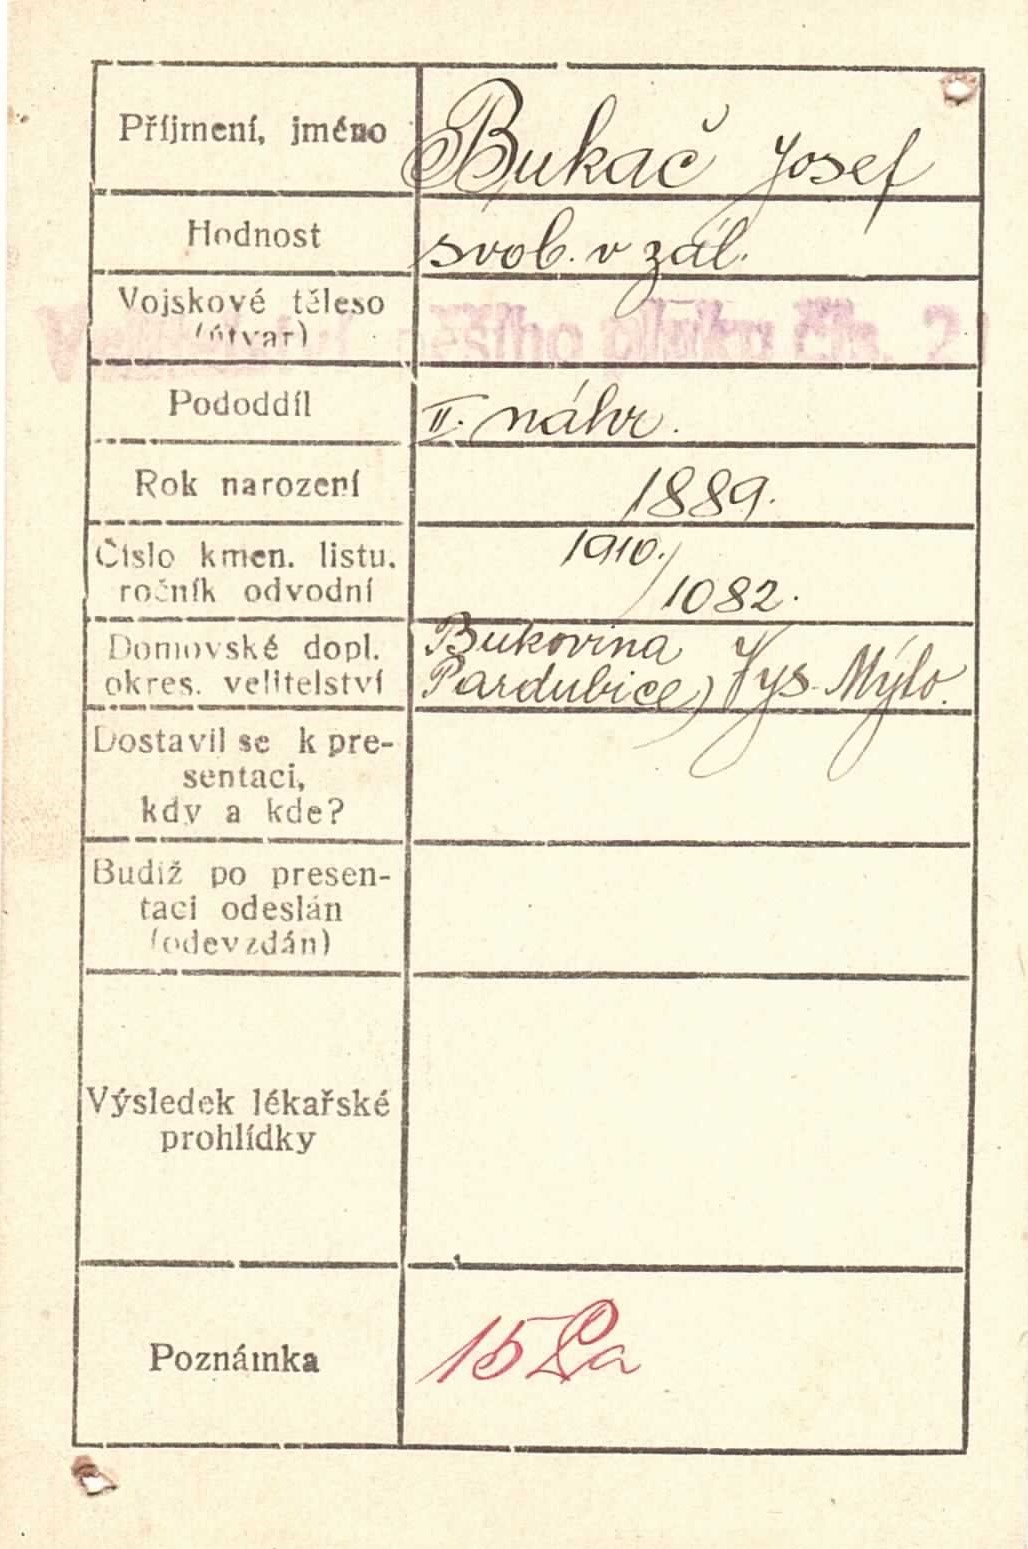 Příjmení, jméno Bukač Josef
Hodnost svob. v zál.
Vojskové těleso
(útvar) Velitelství pěšího pluku čís. 21
Pododdíl II. náhr.
Rok narození 1889.
Číslo kmen. listu. 1910./
ročník odvodní 1082.
Domovské dopl. Bukovina
okres. velitelství Pardubice, Vys. Mýto.
Dostavil se k pre-
sentaci,
kdy a kde?
Budiž po presen-
taci odeslán
(odevzdán)
Výsledek lékařské
prohlídky
Poznámka 15